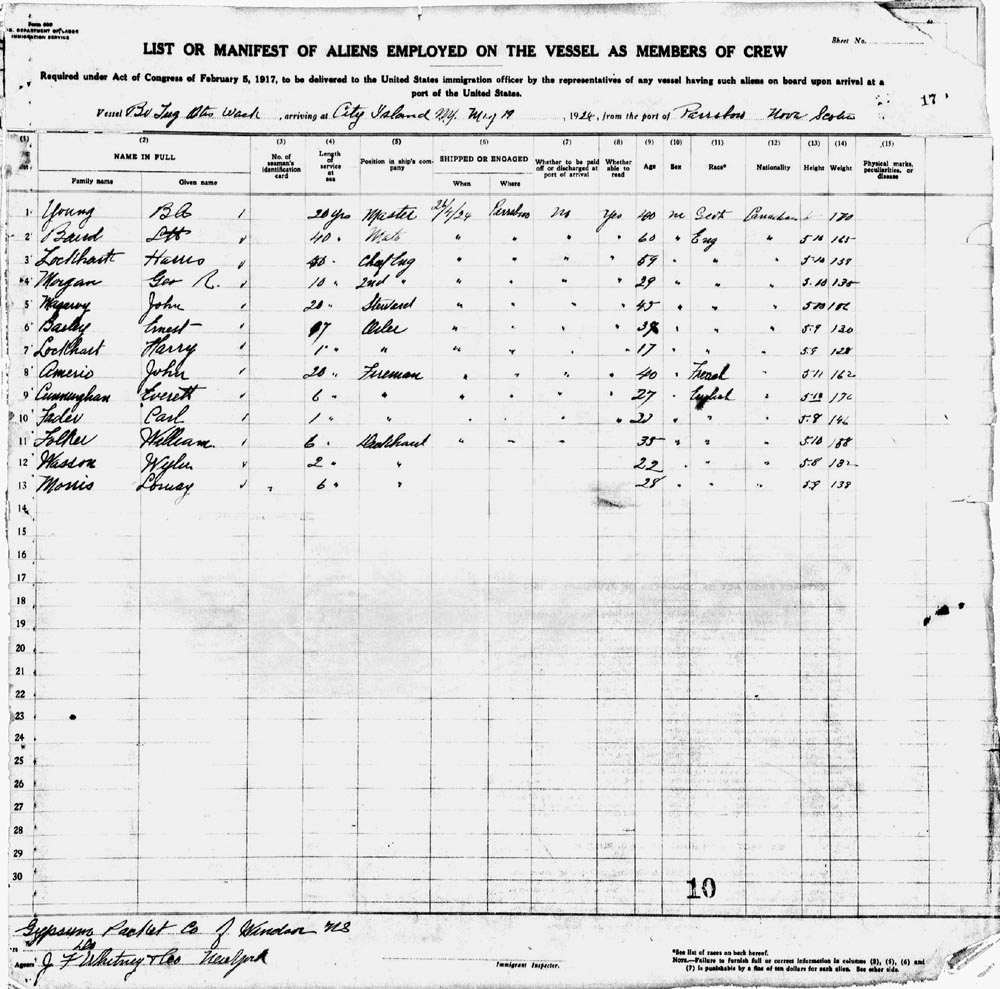 Form 680
U. S. DEPARTMENT OF LABOR
IMMIGRATION SERVICE
Sheet No.
LIST OR MANIFEST OF ALIENS EMPLOYED ON THE VESSEL AS MEMBERS OF CREW
Required under Act of Congress of February 5, 1917, to be delivered to the United States immigration officer by the representatives of any vessel having such aliens on board upon arrival at a
port of the United States.
17
Vessel Br Tug Otis Wack, arriving at City Island NY. May 19, 1924, from the port of Parrsboro Nova Scotia
(1) (2) (3) (4) (5) (6) (7) (8) (9) (10) (11) (12) (13) (14) (15)
NAME IN FULL No. of seaman's identification card Length of service at sea Position in ship's company SHIPPED OR ENGAGED Whether to be paid off or discharged at port of arrival Whether able to read Age Sex Race* Nationality Height Weight Physical marks, peculiarities, or disease
Family name Given name When Where
1 Young 20 yrs Master Parrsboro No Yes 40 m Scotch Canadian 170
2 Baird 40 " Mate " " " " 60 " Eng " 5-10 165
3 Lockhart Harris 40 " Chef Eng " " " " 59 " " " 5-10 159
4 Morgan Geo R. 10 " 2nd " " " " " 29 " " " 5-10 135
5 John 20 " Steward " " " " 45 " " "
6 Ernest 17 Oiler " " " " " " " 5-9 130
7 Lockhart Harry 1 " " " " " " 17 " " " 5.9
8 Ameris John 20 " Fireman " " " " 40 " French " 5-11 162
9 Cunninghan Everett 6 " " " " " " 27 " English " 176
10 Fader Carl 1 " " " " " " " " " 5-8 146
11 William 6 " " " " 35 " " " 5.10
12 Wasson Wylie 2 " " 22 " " " 5.8 132
13 Morris 6 " " 28 " " " 5.9 138
14
15
16
17
18
19
20
21
22
23
24
25
26
27
28
29
30
10
Gypsum Packet Co of Windsor NS
Agents J F Whitney & Co New York
Immigrant Inspector.
*See list of races on back hereof.
NOTE.—Failure to furnish full or correct information in columns (2), (5), (6) and
(7) is punishable by a fine of ten dollars for each alien. See other side.